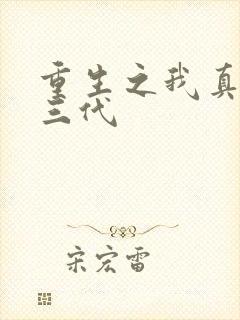 重生之我真
三代
宋宏雷